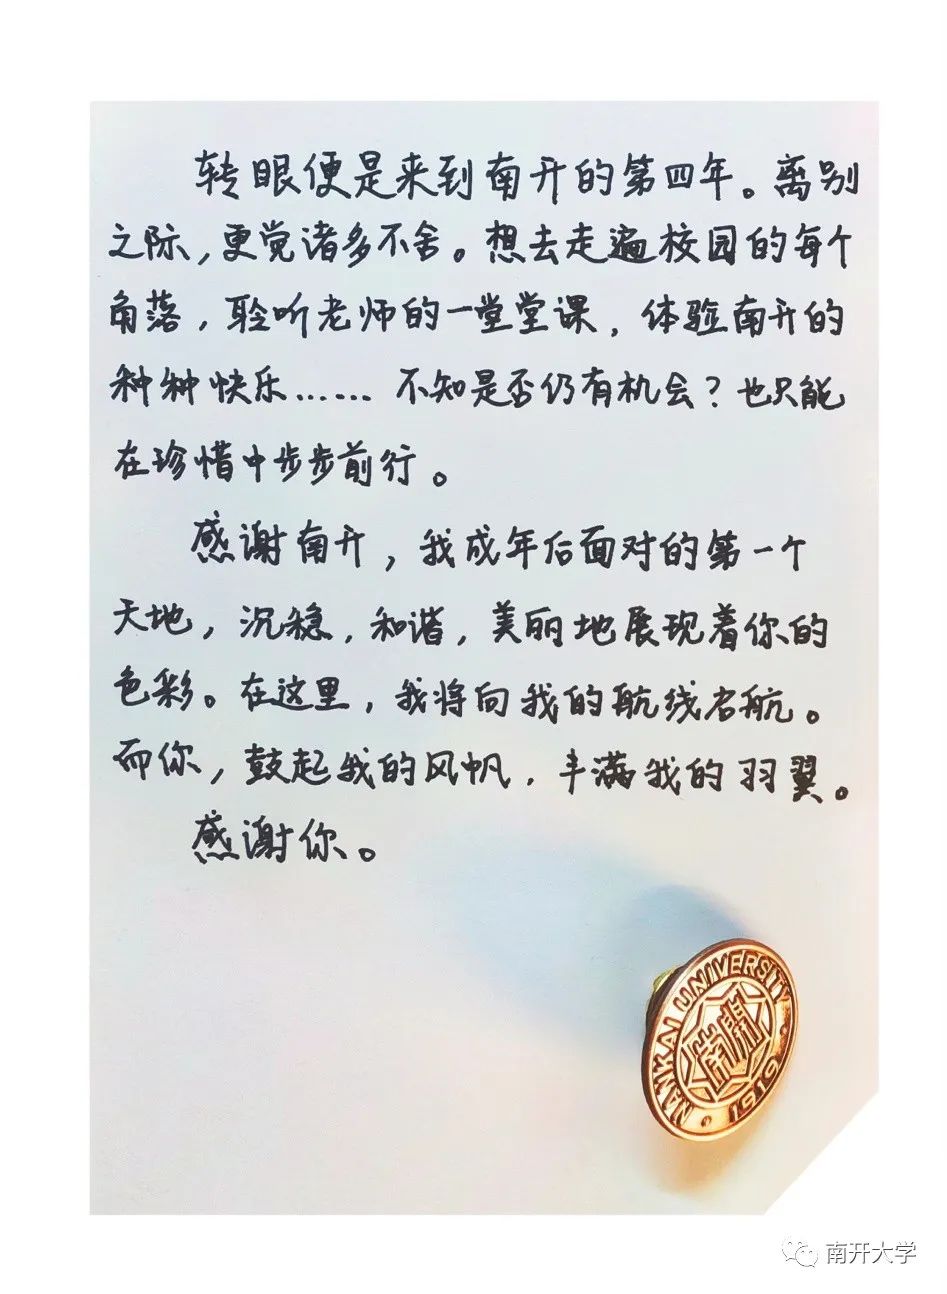 转眼便是来到南开的第四年。离别
之际，更觉诸多不舍。想去走遍校园的每个
角落，聆听老师的一堂堂课，体验南开的
种种快乐……不知是否仍有机会？也只能
在珍惜中步步前行。
感谢南开，我成年后面对的第一个
天地，沉稳，和谐，美丽地展现着你的
色彩。在这里，我将向我的航线启航。
而你，鼓起我的风帆，丰满我的羽翼。
感谢你。
NANKAI UNIVERSITY
南開
1919
南开大学